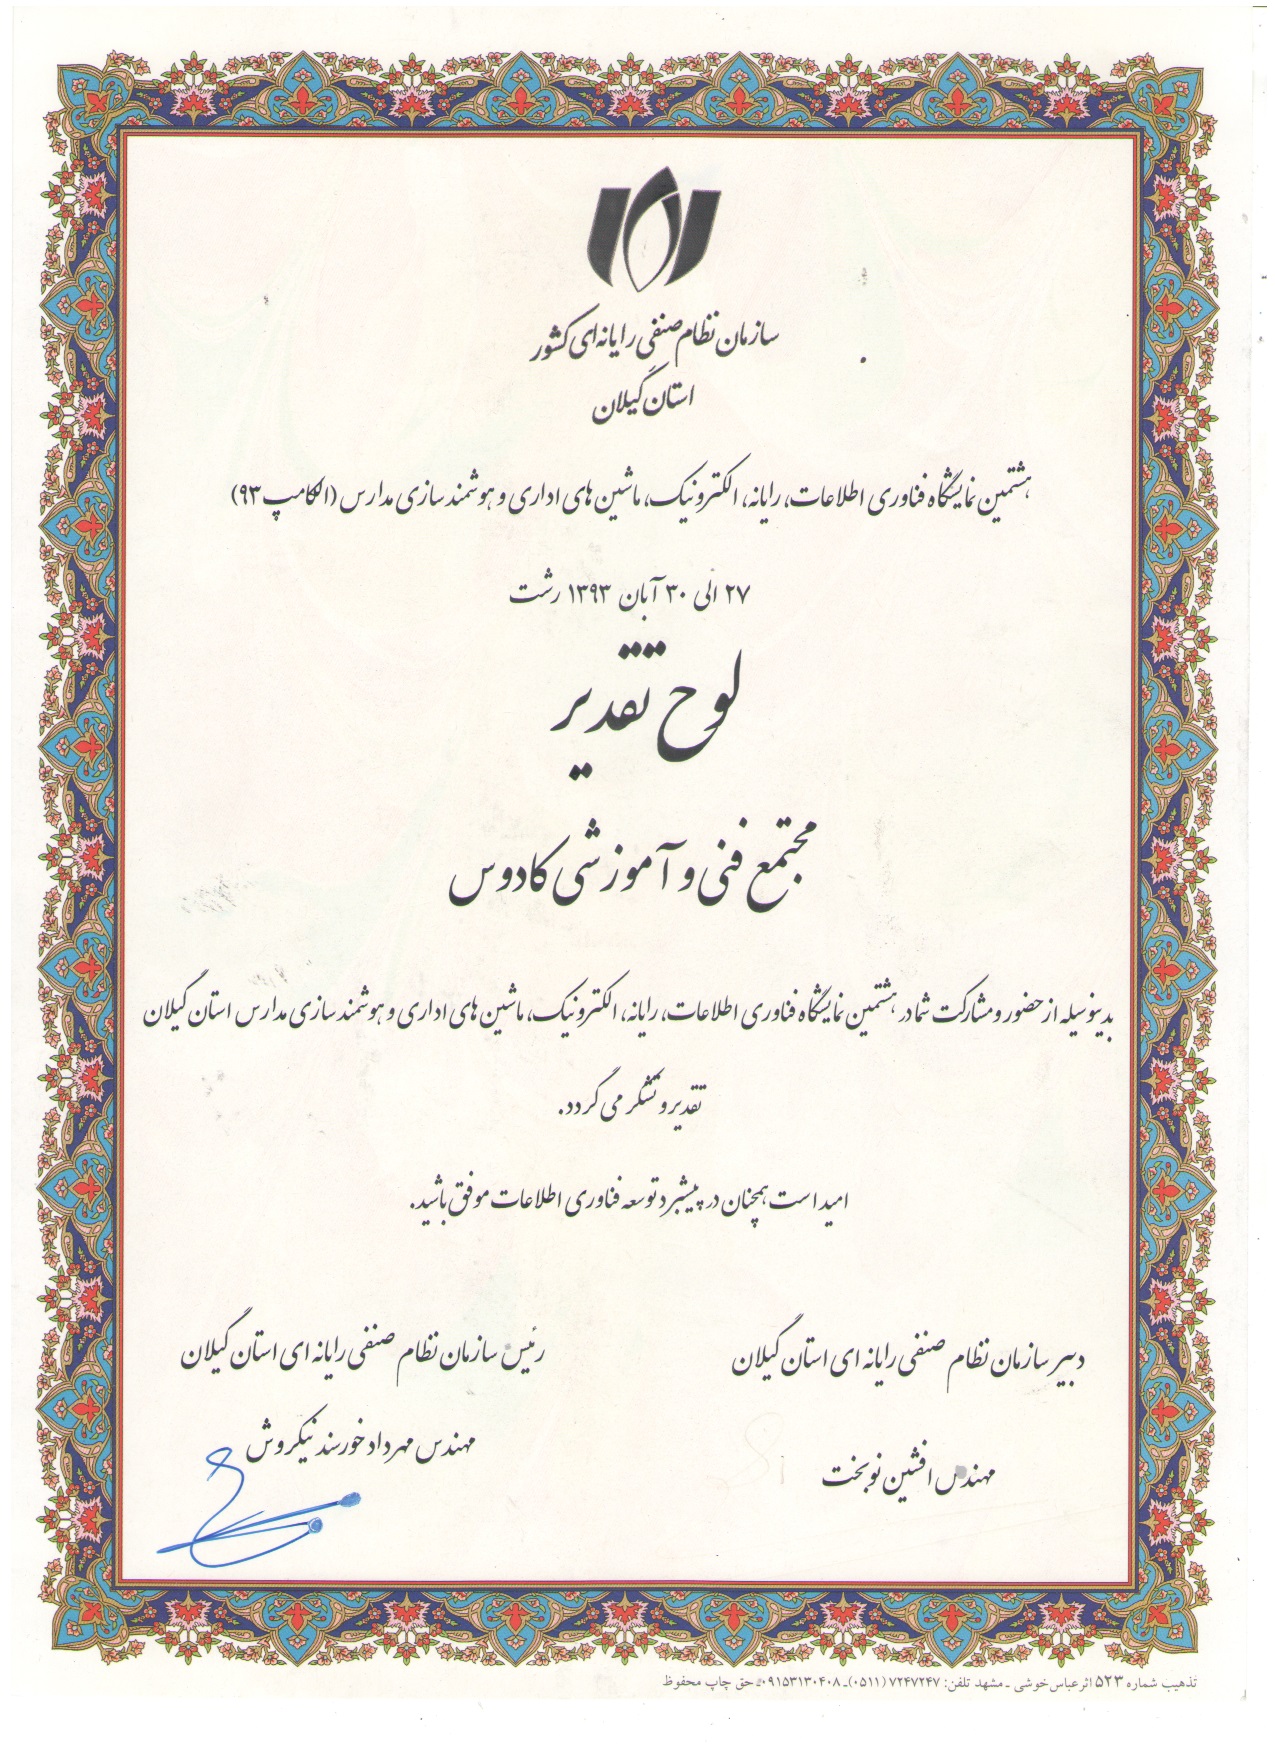 سازمان نظام صنفی رایانه‌ای کشور
استان گیلان
هشتمین نمایشگاه فناوری اطلاعات، رایانه، الکترونیک، ماشین های اداری و هوشمند سازی مدارس (الکامپ ۹۳)
۲۷ الی ۳۰ آبان ۱۳۹۳ رشت
لوح تقدیر
مجتمع فنی و آموزشی کادوس
بدینوسیله از حضور و مشارکت شما در هشتمین نمایشگاه فناوری اطلاعات، رایانه، الکترونیک، ماشین های اداری و هوشمند سازی مدارس استان گیلان
تقدیر و تشکر می گردد.
امید است همچنان در پیشبرد توسعه فناوری اطلاعات موفق باشید.
دبیر سازمان نظام صنفی رایانه ای استان گیلان
مهندس افشین نوبخت
رئیس سازمان نظام صنفی رایانه ای استان گیلان
مهندس مهرداد خورسند نیکروش
تذهیب شماره ۵۲۳ اثر عباس خوشی - مشهد تلفن: ۷۲۴۷۲۴۷ (۰۵۱۱)-۰۹۱۵۳۱۳۰۴۰۸ حق چاپ محفوظ